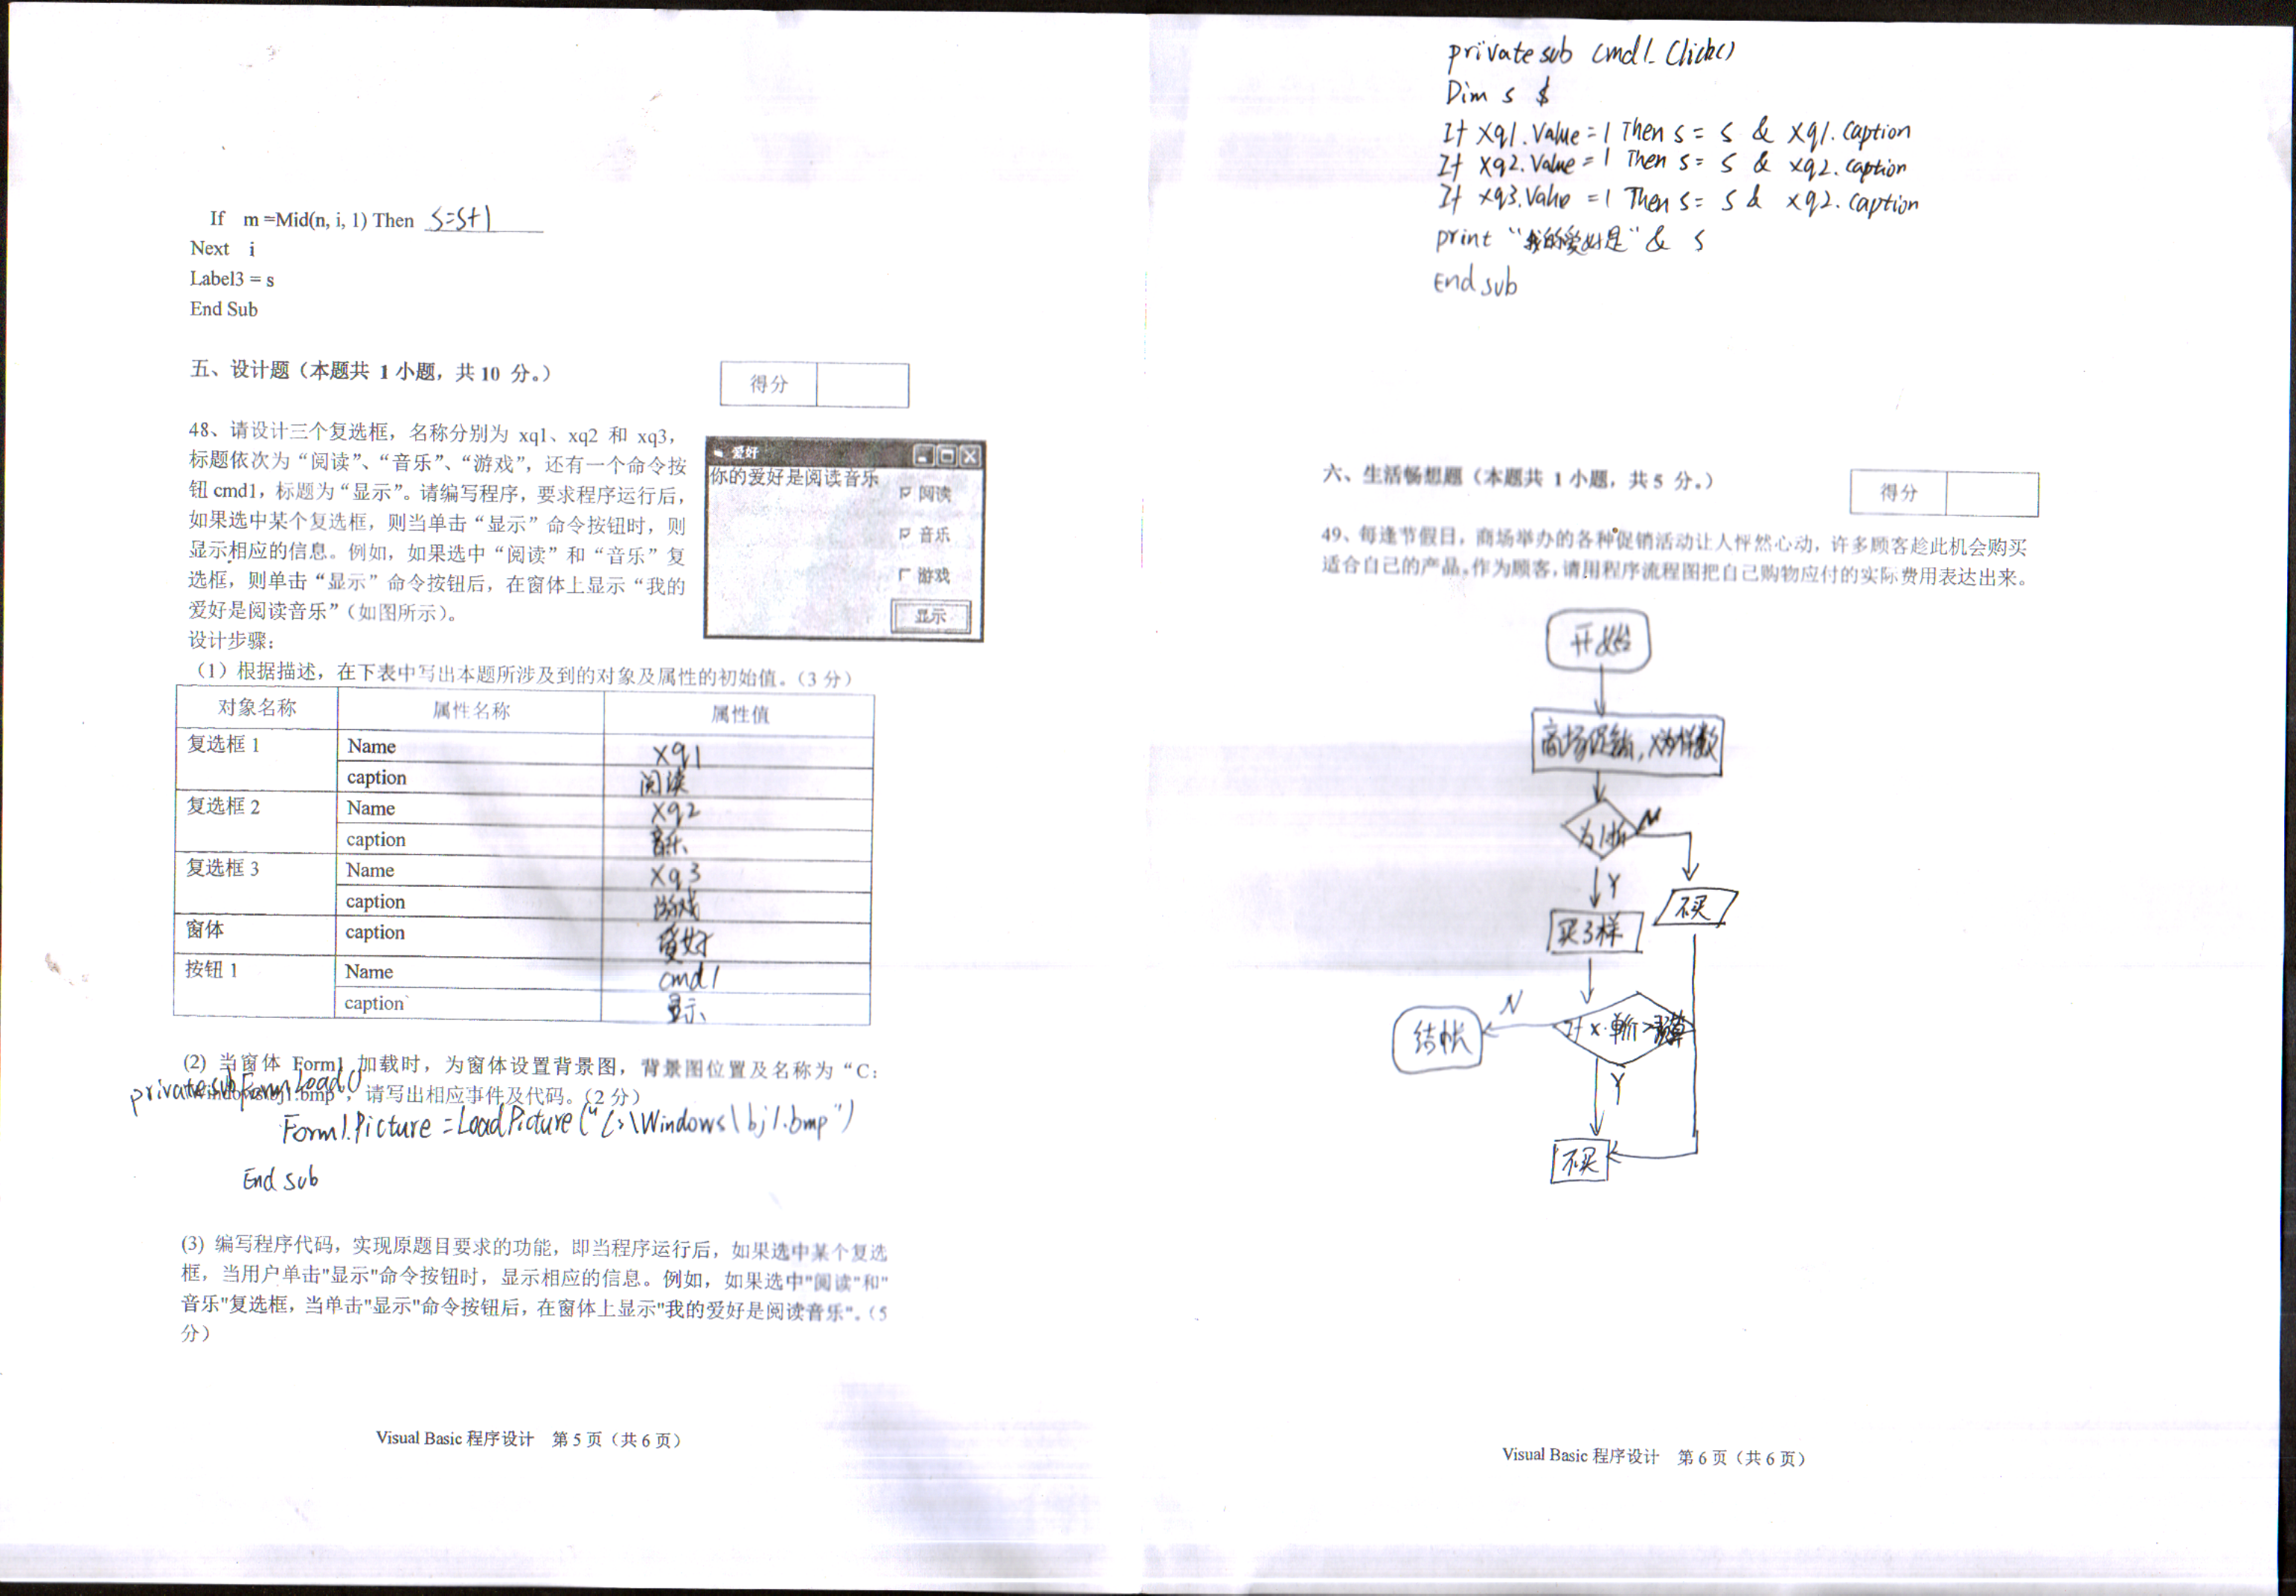 If m =Mid(n, i, 1) Then s=s+1
Next i
Label3 = s
End Sub
五、设计题（本题共 1 小题，共 10 分。）
得分
48、请设计三个复选框，名称分别为 xq1、xq2 和 xq3，
标题依次为“阅读”、“音乐”、“游戏”，还有一个命令按
钮 cmd1，标题为“显示”。请编写程序，要求程序运行后，
如果选中某个复选框，则当单击“显示”命令按钮时，则
显示相应的信息。例如，如果选中“阅读”和“音乐”复
选框，则单击“显示”命令按钮后，在窗体上显示“我的
爱好是阅读音乐”（如图所示）。
爱好
你的爱好是阅读音乐
阅读
音乐
游戏
显示
设计步骤：
（1）根据描述，在下表中写出本题所涉及到的对象及属性的初始值。（3 分）
对象名称 属性名称 属性值
复选框 1 Name xq1
caption 阅读
复选框 2 Name xq2
caption 音乐
复选框 3 Name xq3
caption 游戏
窗体 caption 爱好
按钮 1 Name cmd1
caption 显示
(2) 当窗体 Form1 加载时，为窗体设置背景图，背景图位置及名称为“C:
\windows\bj1.bmp”，请写出相应事件及代码。（2 分）
private sub Form_Load()
Form1.Picture = LoadPicture("C:\Windows\bj1.bmp")
End sub
(3) 编写程序代码，实现原题目要求的功能，即当程序运行后，如果选中某个复选
框，当用户单击"显示"命令按钮时，显示相应的信息。例如，如果选中"阅读"和"
音乐"复选框，当单击"显示"命令按钮后，在窗体上显示"我的爱好是阅读音乐"。（5
分）
Visual Basic 程序设计 第 5 页（共 6 页）
private sub cmd1_Click()
Dim s $
If xq1.Value = 1 Then s = s & xq1.caption
If xq2.Value = 1 Then s = s & xq2.caption
If xq3.Value = 1 Then s = s & xq2.caption
print "我的爱好是" & s
End sub
六、生活畅想题（本题共 1 小题，共 5 分。）
得分
49、每逢节假日，商场举办的各种促销活动让人怦然心动，许多顾客趁此机会购买
适合自己的产品。作为顾客，请用程序流程图把自己购物应付的实际费用表达出来。
开始
商场促销，x为样数
N
Y
买3样
不买
If x·单价>预算
N
结帐
Y
不买
Visual Basic 程序设计 第 6 页（共 6 页）